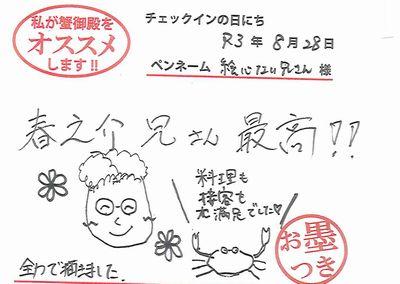 私が蟹御殿を
オススメ
します!!
チェックインの日にち
R3年8月28日
ペンネーム 絵心ない兄さん 様
春之介兄さん最高!!
料理も
接客も
大満足でした♡
お墨
つき
全力で描きました.